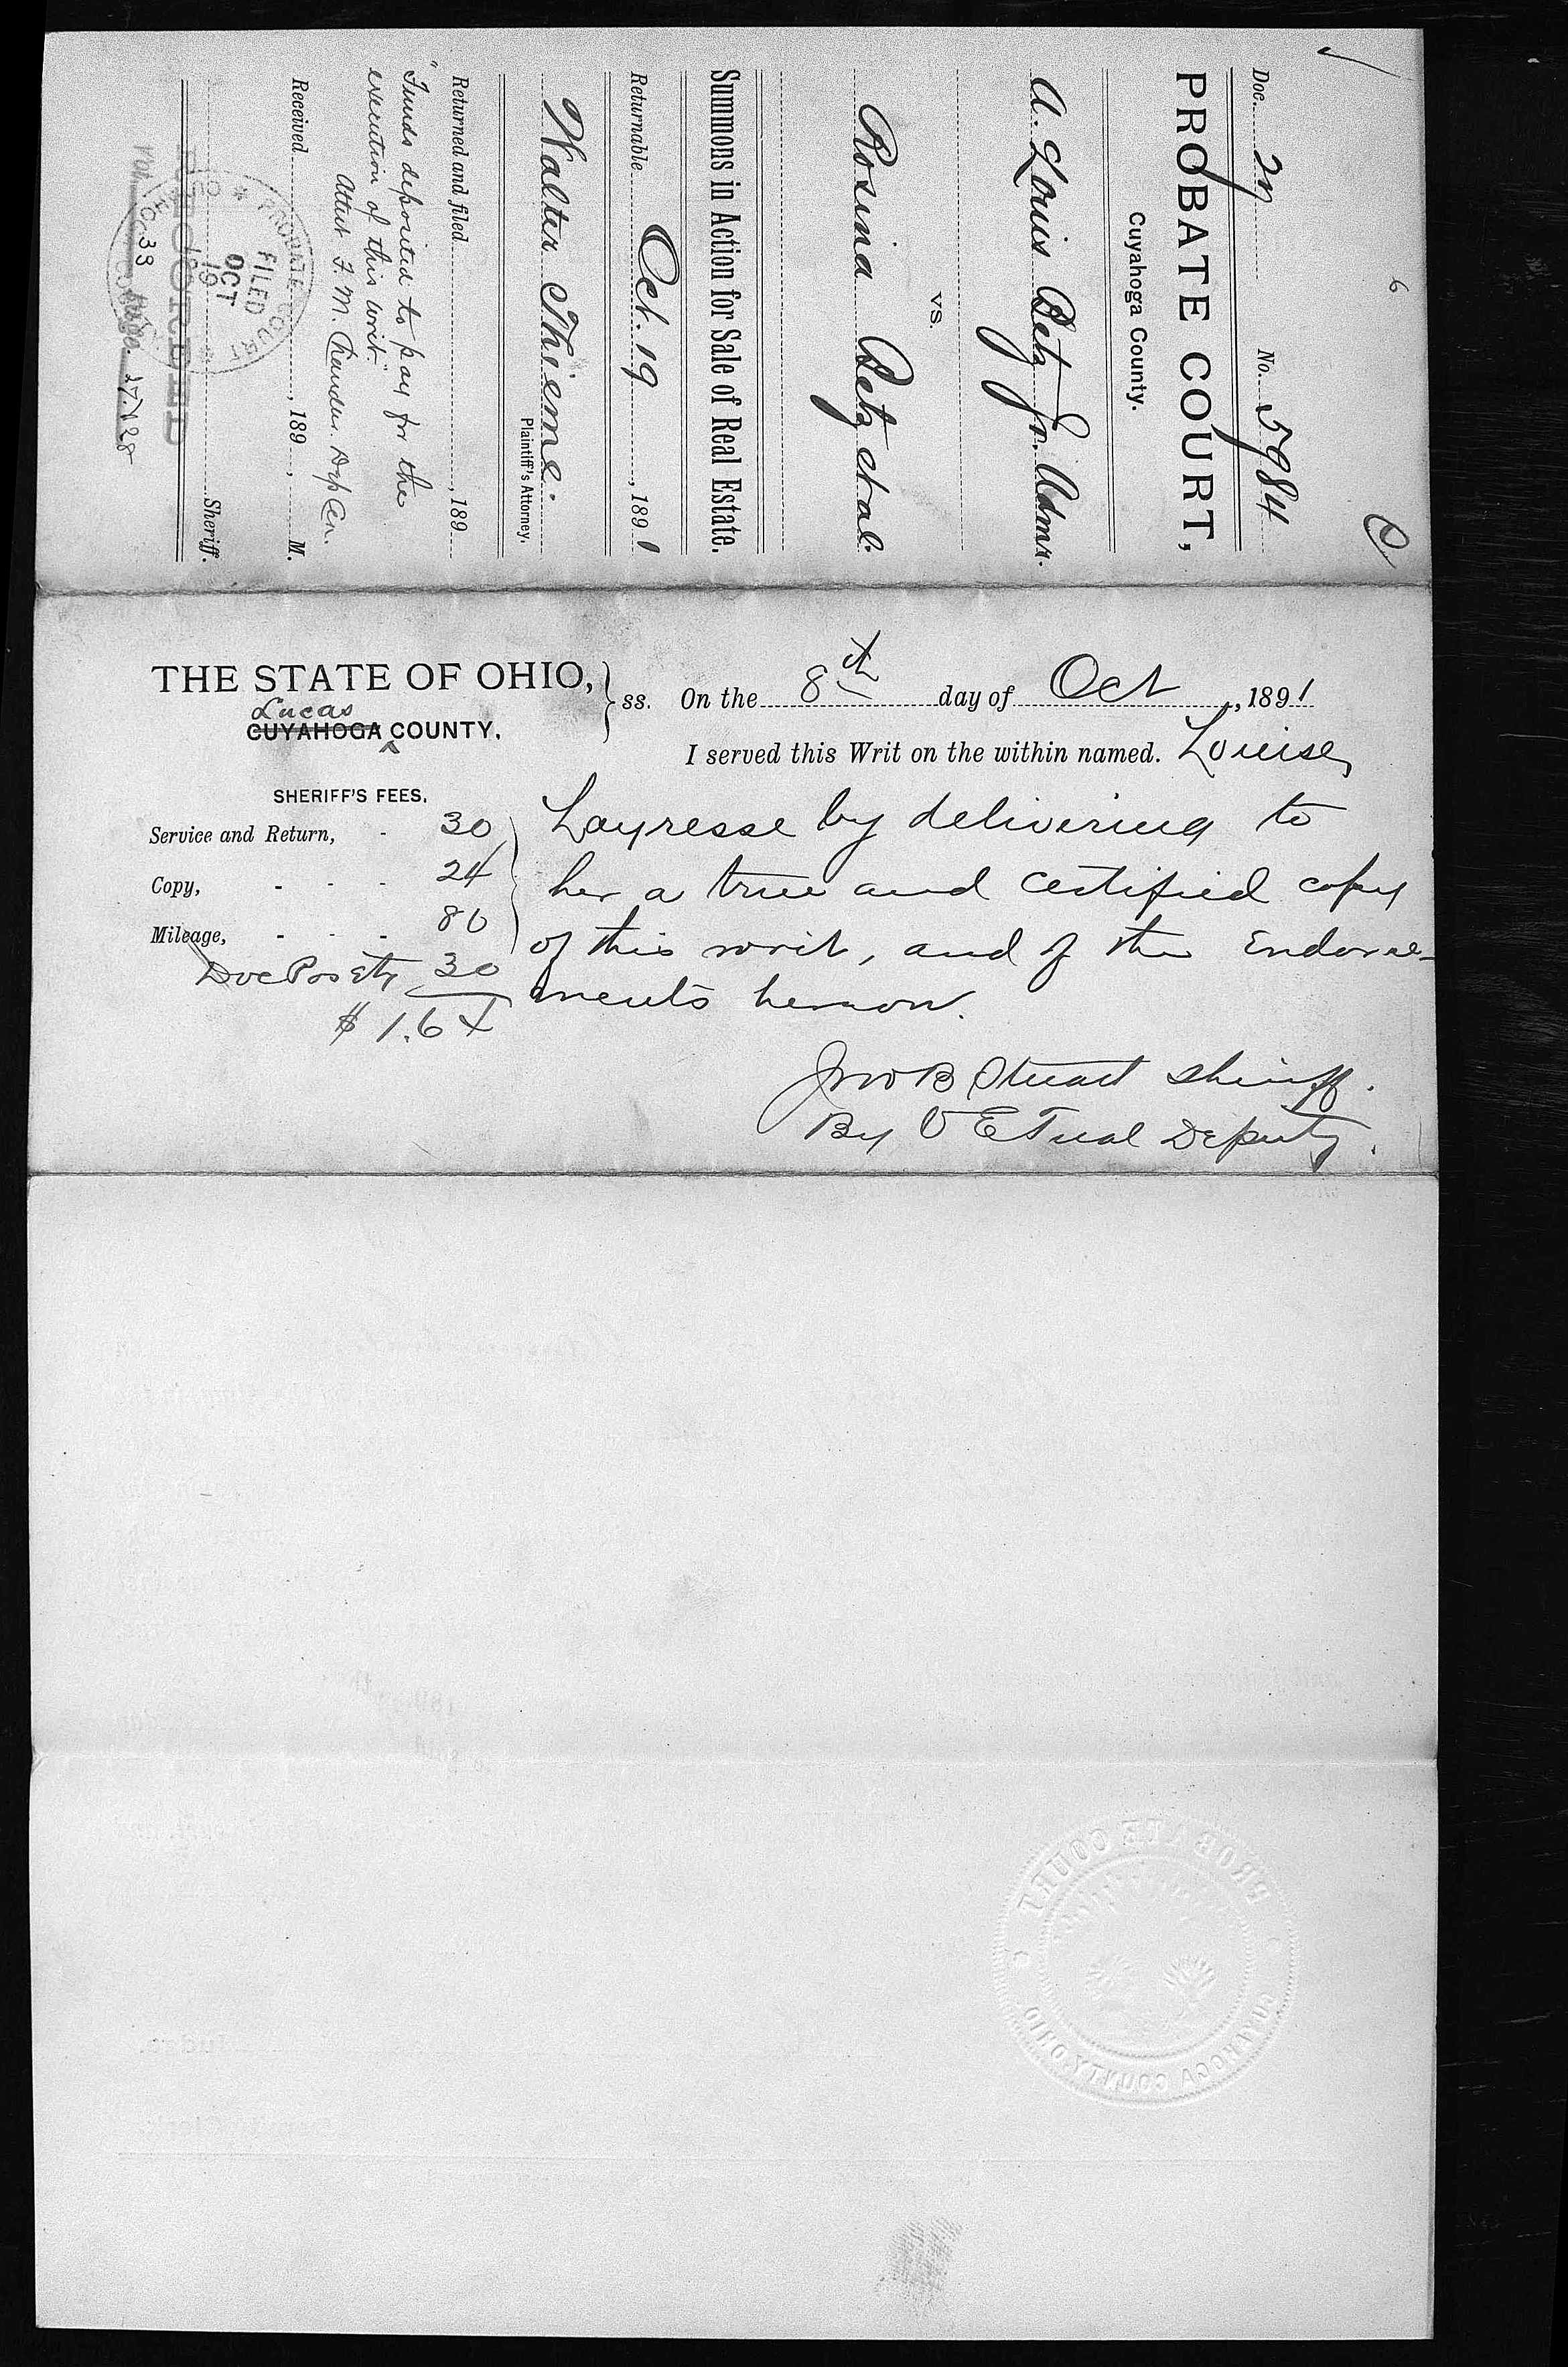 6
Doc. 27 No. 5984
PROBATE COURT,
Cuyahoga County.
A. Louis Betz Jr. Admr.
vs.
Rosina Betz et al.
Summons in Action for Sale of Real Estate.
Returnable Oct. 19, 1891
Walter Thieme.
Plaintiff's Attorney.
Returned and filed, 189
"Funds deposited to pay for the
execution of this writ."
Attest F. M. Dep Clk.
Received, 189, M.
Sheriff.
PROBATE COURT
FILED
OCT
19
RECORDED
Vol. 33 Page 27, 28
THE STATE OF OHIO,
Lucas
CUYAHOGA COUNTY.
ss. On the 8th day of Oct, 1891
I served this Writ on the within named. Louise
Layresse by delivering to
her a true and certified copy
of this writ, and of the Endorse-
ments hereon.
SHERIFF'S FEES.
Service and Return, - 30
Copy, - - - 24
Mileage, - - - 80
Doc Pos Etc 30
$ 1.64
Jno B Stuart Sheriff.
By Deputy.
PROBATE COURT
CUYAHOGA COUNTY, OHIO